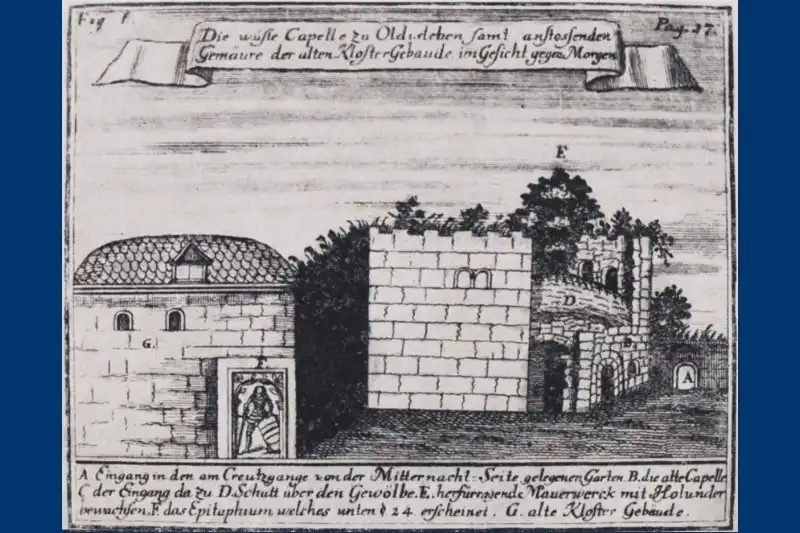 Fig 1.
Pag. 27.
Die wüste Capelle zu Oldisleben samt anstossenden
Gemäure der alten Kloster Gebäude im Gesicht gegen Morgen
E
D
G.
F
B
A
A Eingang in den am Creutzgange von der Mitternacht=Seite gelegenen Garten. B. die alte Capelle
C der Eingang da zu D. Schutt über den Gewölbe. E. herfürragende Mauerwerck mit Holunder
bewachsen. F. das Epitaphium welches unten § 24. erscheinet. G. alte Kloster Gebäude.